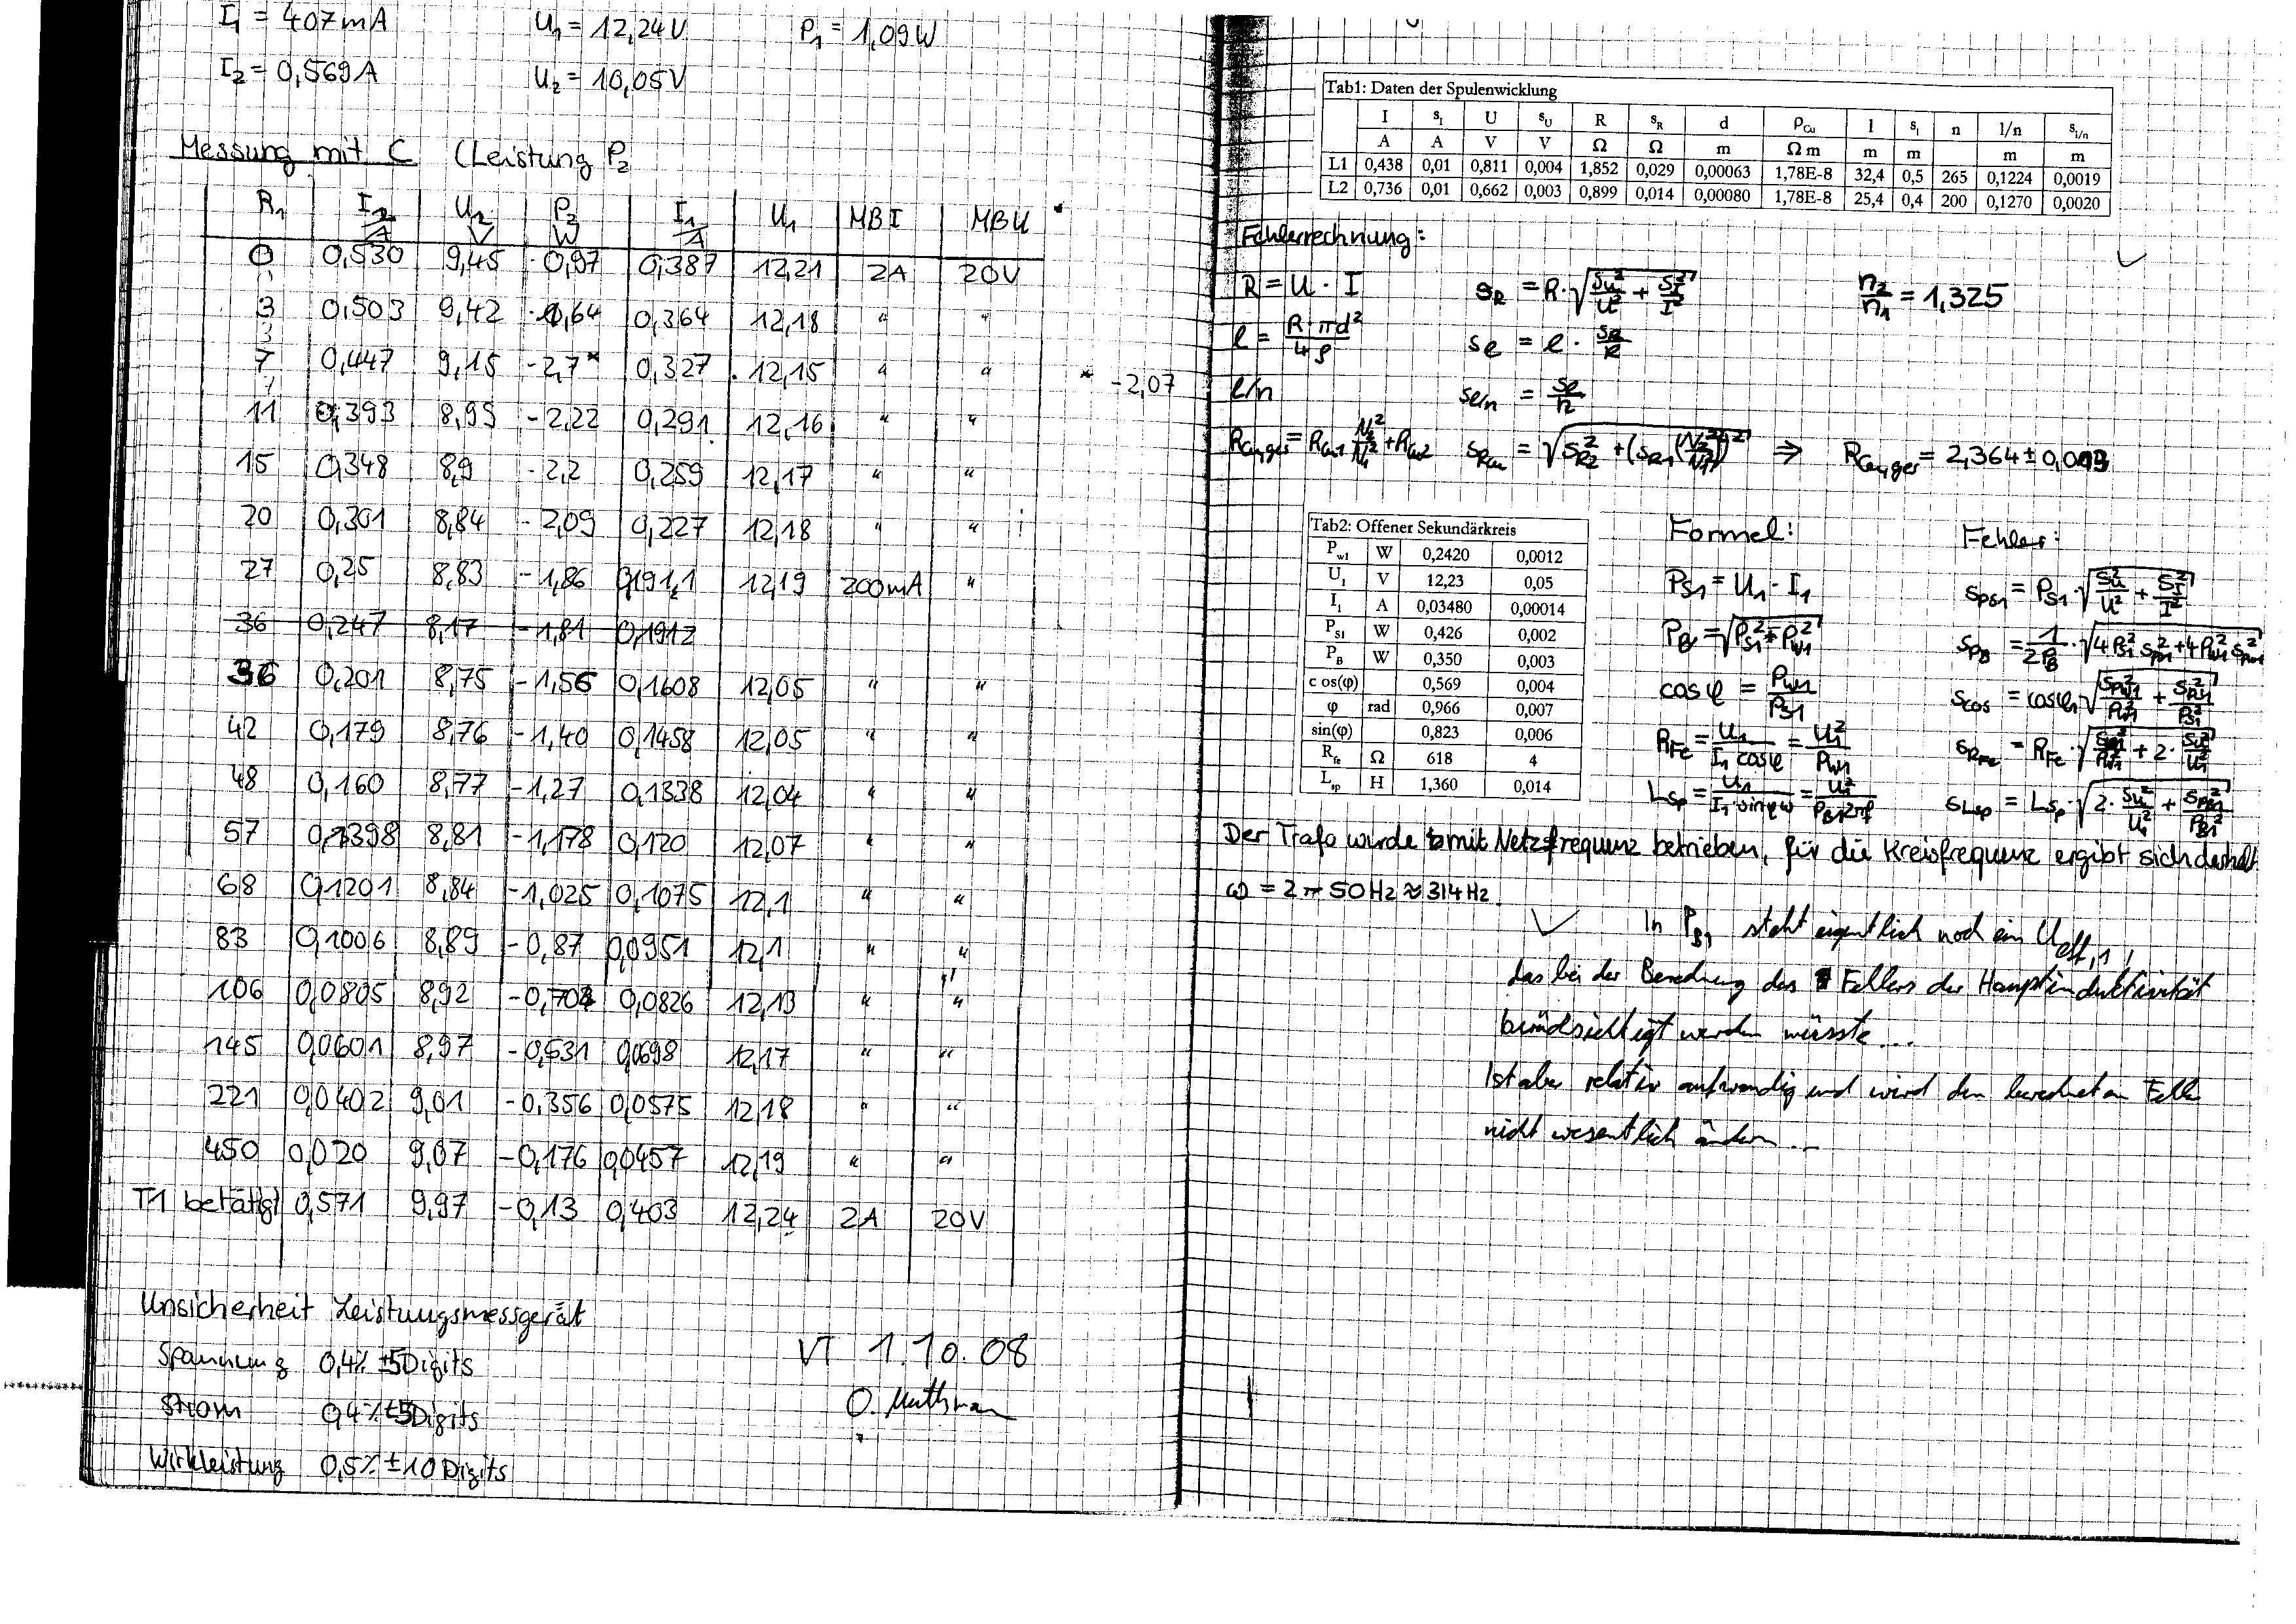 I₁ = 407mA U₁ = 12,24V P₁ = 1,09W
I₂ = 0,569A U₂ = 10,05V
Messung mit C (Leistung P₂
R₁ I₂/A U₂/V P₂/W I₁/A U₁ MBI MBU
0 0,530 9,45 -0,97 0,387 12,21 2A 20V
3 0,503 9,42 -1,64 0,364 12,18 " "
7 0,447 9,15 -2,7* 0,327 12,15 " " * -2,07
11 0,393 8,95 -2,22 0,291 12,16 " "
15 0,348 8,9 -2,2 0,259 12,17 " "
20 0,301 8,84 -2,09 0,227 12,18 " "
27 0,25 8,83 -1,86 0,191,1 12,19 200mA "
36 0,247 8,17 -1,81 0,1912
36 0,201 8,75 -1,56 0,1608 12,05 " "
42 0,179 8,76 -1,40 0,1458 12,05 " "
48 0,160 8,77 -1,27 0,1338 12,04 " "
57 0,1398 8,81 -1,178 0,120 12,07 " "
68 0,1201 8,84 -1,025 0,1075 12,1 " "
83 0,1006 8,89 -0,87 0,0951 12,1 " "
106 0,0805 8,92 -0,704 0,0826 12,13 " "
145 0,0601 8,97 -0,531 0,0698 12,17 " "
221 0,0402 9,01 -0,356 0,0575 12,18 " "
450 0,020 9,07 -0,176 0,0457 12,19 " "
T1 betätigt 0,571 9,97 -0,13 0,403 12,24 2A 20V
Unsicherheit Leistungsmessgerät
Spannung 0,4% ±5Digits
Strom 0,4% ±5Digits
Wirkleistung 0,5% ±10Digits
VT 1.10.08
Tab1: Daten der Spulenwicklung
I s_I U s_U R s_R d ρ_Cu l s_l n l/n s_l/n
A A V V Ω Ω m Ω m m m m m
L1 0,438 0,01 0,811 0,004 1,852 0,029 0,00063 1,78E-8 32,4 0,5 265 0,1224 0,0019
L2 0,736 0,01 0,662 0,003 0,899 0,014 0,00080 1,78E-8 25,4 0,4 200 0,1270 0,0020
Fehlerrechnung:
R = U · I s_R = R·√(s_U²/U² + s_I²/I²) n₂/n₁ = 1,325
l = R·πd²/4ρ s_l = l · s_R/R
l/n s_l/n = s_l/n
R_Cu,ges = R_Cu1 N₂²/N₁² + R_Cu2 s_RCu = √(s_R2² + (s_R1 (N₂/N₁)²)²) ⇒ R_Cu,ges = 2,364 ±
Tab2: Offener Sekundärkreis
P_w1 W 0,2420 0,0012
U₁ V 12,23 0,05
I₁ A 0,03480 0,00014
P_S1 W 0,426 0,002
P_B W 0,350 0,003
c os(φ) 0,569 0,004
φ rad 0,966 0,007
sin(φ) 0,823 0,006
R_fe Ω 618 4
L_sp H 1,360 0,014
Formel: Fehler:
P_S1 = U₁ · I₁ s_PS1 = P_S1·√(s_U²/U² + s_I²/I²)
P_B = √(P_S1² - P_W1²) s_PB = 1/2P_B · √(4P_S1² s_PS1² + 4P_W1² s_PW1²)
cos φ = P_W1/P_S1 s_cos = cosφ₁ √(s_PW1²/P_W1² + s_PS1²/P_S1²)
R_Fe = U₁/I₁ cosφ = U₁²/P_W1 s_RFe = R_Fe · √(s_PW1²/P_W1² + 2· s_U1²/U₁²)
L_Sp = U₁/I₁·sinφ ω = U₁²/P_B1 2πf s_LSp = L_Sp·√(2· s_U²/U₁² + s_PB1²/P_B1²)
Der Trafo wurde mit Netzfrequenz betrieben, für die Kreisfrequenz ergibt sich deshalb
ω = 2π 50Hz ≈ 314Hz
In P_B1 steht eigentlich noch ein U_eff,1,
das bei der Berechnung des Fehlers der Hauptinduktivität
berücksichtigt werden müsste...
Ist aber relativ aufwendig und wird den berechneten Fehler
nicht wesentlich ändern...